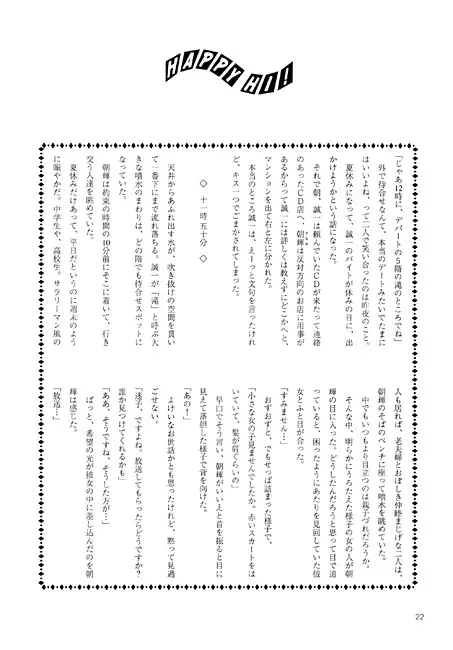 HAPPY HI!
「じゃあ12時に、デパートの5階の滝のところでね」
外で待合せなんて、本当のデートみたいでたまに
はいいよね、って二人で笑い合ったのは昨夜のこと。
夏休みになって、誠一のバイトが休みの日に、出
かけようかという話になった。
それで朝、誠一は頼んでいたCDが来たって連絡
のあったCD店へ、朝輝は反対方向のお店に用事が
あるからって誠一には詳しくは教えずにどこかへと、
マンションを出て右と左に分かれた。
本当のところ誠一は、えーっと文句を言ったけれ
ど、キス一つでごまかされてしまった。
◇ 十一時五十分 ◇
天井からあふれ出す水が、吹き抜けの空間を貫い
て一番下にまで流れ落ちる。誠一が「滝」と呼ぶ大
きな噴水のまわりは、どの階でも待合せスポットに
なっていた。
朝輝は約束の時間の10分前にそこに着いて、行き
交う人達を眺めていた。
夏休みだけあって、平日だというのに週末のよう
に賑やかだ。中学生や、高校生。サラリーマン風の
人も居れば、老夫婦とおぼしき仲睦まじげな二人は、
朝輝のそばのベンチに座って噴水を眺めていた。
中でもいつもより目立つのは親子づれだろうか。
そんな中、明らかにうろたえた様子の女の人が朝
輝の目に入った。どうしたんだろうと思って目で追
っていると、困ったようにあたりを見回していた彼
女とふと目が合った。
「すみません…」
おずおずと、でもせっぱ詰まった様子で、
「小さな女の子見ませんでしたか。赤いスカートをは
いていて、髪が肩ぐらいの」
早口でそう言い、朝輝がいいえと首を振ると目に
見えて落胆した様子で背を向けた。
「あの!」
よけいなお世話かとも思ったけれど、黙って見過
ごせない。
「迷子、ですよね。放送してもらったらどうですか?
誰か見つけてくれるかも」
「ああ、そうですね、そうした方が…」
ぱっと、希望の光が彼女の中に差し込んだのを朝
輝は感じた。
「放送…」
22